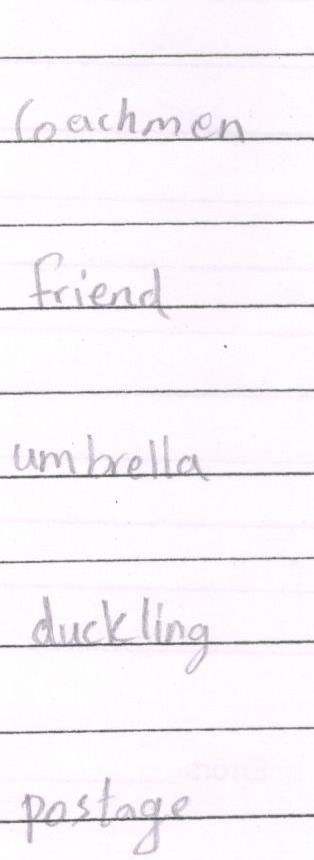 Coachmen
friend
umbrella
duckling
postage